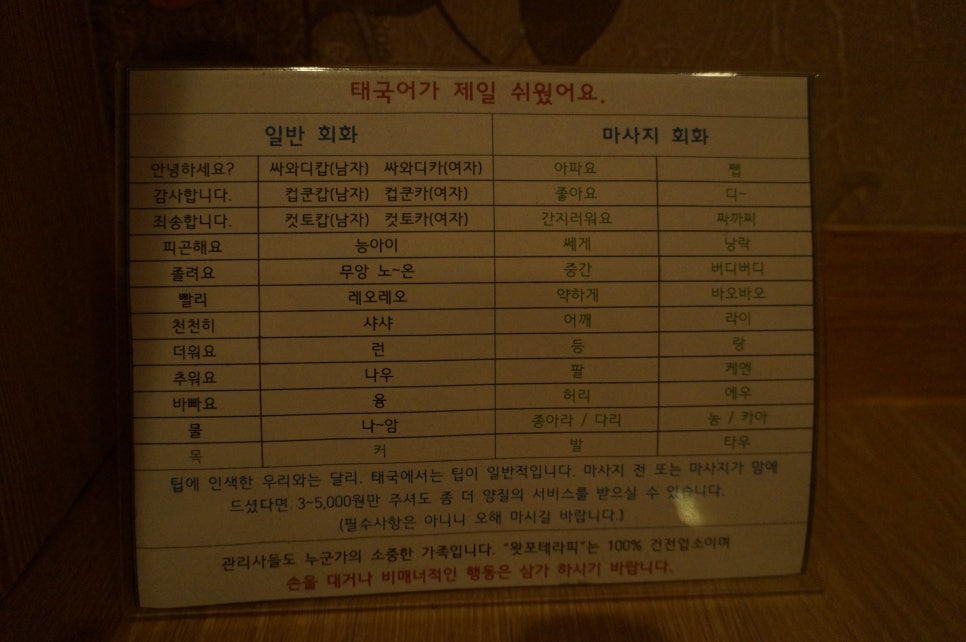 태국어가 제일 쉬웠어요.
일반 회화 마사지 회화
안녕하세요? 싸와디캅(남자) 싸와디카(여자) 아파요 쨉
감사합니다. 컵쿤캅(남자) 컵쿤카(여자) 좋아요 디~
죄송합니다. 컷토캅(남자) 컷토카(여자) 간지러워요 짜까찌
피곤해요 능아이 쎄게 낭락
졸려요 무앙 노~온 중간 버디버디
빨리 레오레오 약하게 바오바오
천천히 샤샤 어깨 라이
더워요 런 등 랑
추워요 나우 팔 케엔
바빠요 용 허리 에우
물 나~암 종아라 / 다리 농 / 카아
목 커 발 타우
팁에 인색한 우리와는 달리. 태국에서는 팁이 일반적입니다. 마사지 전 또는 마사지가 맘에
드셨다면 3~5,000원만 주셔도 좀 더 양질의 서비스를 받으실 수 있습니다.
(필수사항은 아니니 오해 마시길 바랍니다.)
관리사들도 누군가의 소중한 가족입니다. "왓포테라피"는 100% 건전업소이며
손을 대거나 비매너적인 행동은 삼가 하시기 바랍니다.